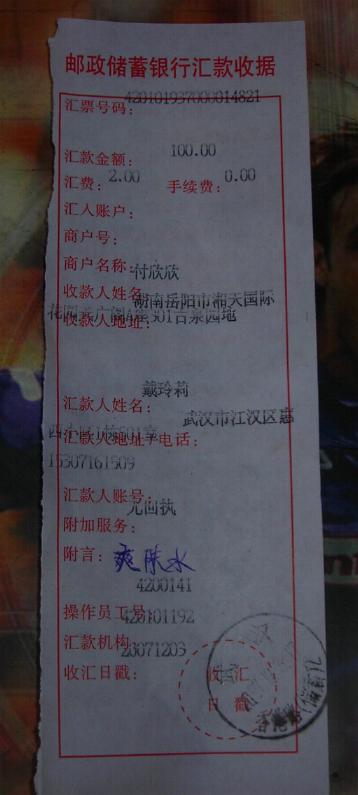 邮政储蓄银行汇款收据
汇票号码：420101937000014821
汇款金额：100.00
汇费：2.00 手续费：0.00
汇入账户：
商户号：
商户名称：付欣欣
收款人姓名：湖南岳阳市湘天国际
收款人地址：301吉泉园地
戴玲莉
汇款人姓名：武汉市江汉区惠
汇款人地址/电话：
15307161509
汇款人账号：
附加服务：无回执
附言：爽肤水
4200141
操作员工号：420101192
汇款机构：20071203
收汇日戳：
收汇
日戳